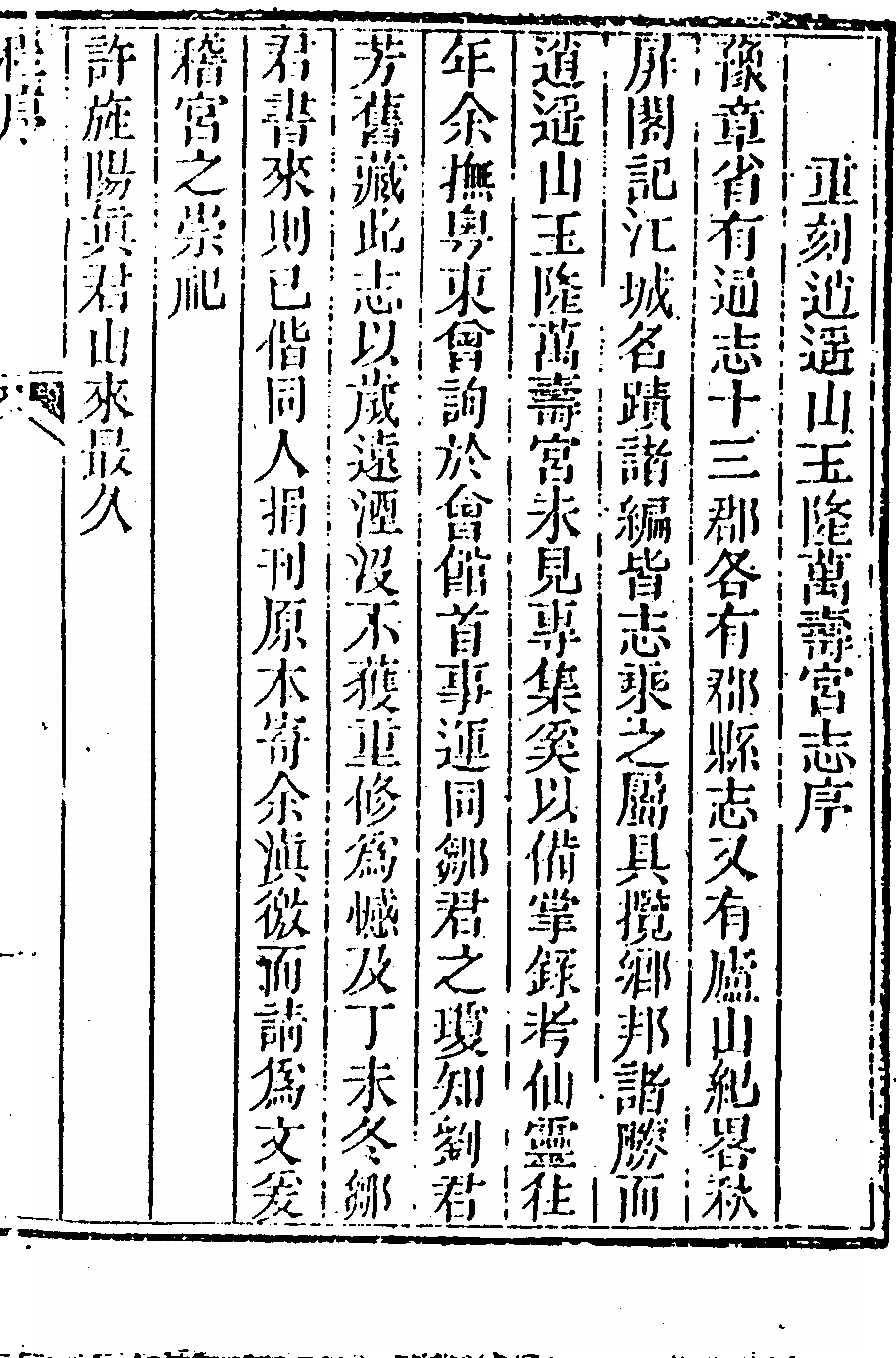 重刻逍遥山玉隆萬壽宮志序
豫章省有通志十三郡各有郡縣志又有廬山紀畧秋
屏閣記江城名蹟諸編皆志乘之屬具攬鄉邦諸勝而
逍遥山玉隆萬壽宮未見專集奚以備掌錄考仙靈徃
年余撫粤東曾詢於會館首事運同鄒君之瓊知劉君
芳舊藏此志以歲遠湮沒不獲重修為憾及丁未冬鄒
君書來則已偕同人捐刊原本寄余滇徼而請為文爰
稽宮之崇祀
許旌陽眞君由來最久